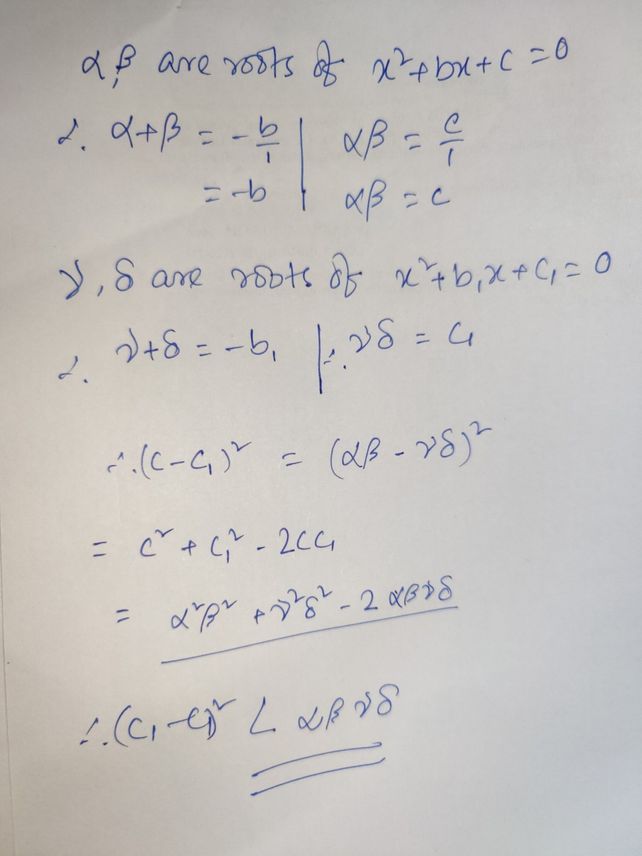 α, β are roots of x²+bx+c=0
∴ α+β = -b/1 | αβ = c/1
= -b | αβ = c
γ, δ are roots of x²+b₁x+c₁=0
∴ γ+δ = -b₁ | ∴ γδ = c₁
∴ (c-c₁)² = (αβ - γδ)²
= c² + c₁² - 2cc₁
= α²β² + γ²δ² - 2αβγδ
∴ (c₁-c)² < αβγδ